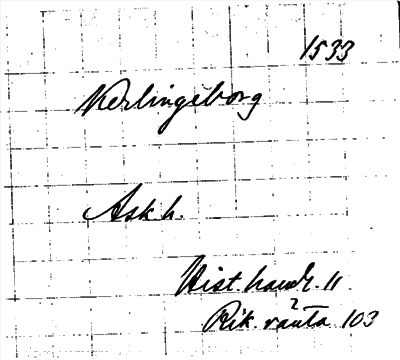 1533
Kerlingeborg
Ask h.
Hist. handl. 11
2
Rik. ränta 103